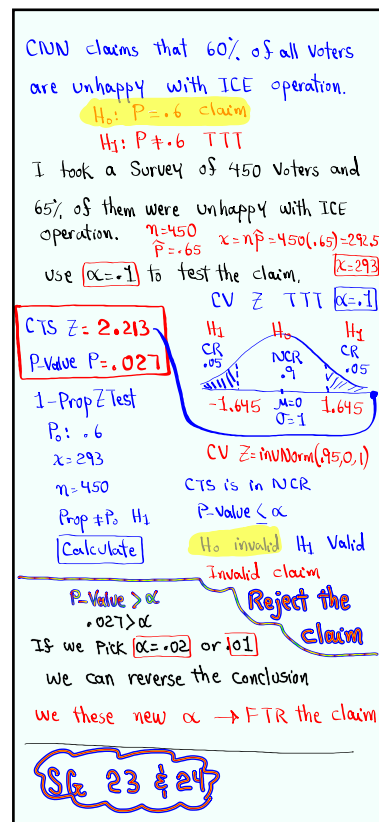 CNN claims that 60% of all voters
are unhappy with ICE operation.
H₀: P = .6 claim
H₁: P ≠ .6 TTT
I took a Survey of 450 Voters and
65% of them were unhappy with ICE
operation. n=450 x = np̂ = 450(.65) = 292.5
p̂ = .65 x=293
use α=.1 to test the claim.
CV Z TTT α=.1
CTS Z = 2.213
P-Value P = .027
H₁ H₀ H₁
CR NCR CR
.05 .9 .05
-1.645 μ=0 1.645
σ=1
1-PropZTest
P₀: .6
x=293
n=450
Prop ≠ P₀ H₁
Calculate
CV Z = invNorm(.95,0,1)
CTS is in NCR
P-Value ≤ α
H₀ invalid H₁ Valid
Invalid claim
Reject the
claim
P-Value > α
.027 > α
If we pick α=.02 or .01
we can reverse the conclusion
we these new α → FTR the claim
SG 23 & 24